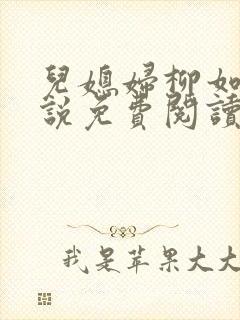 兒媳婦柳如
說免費閱讀
我是苹果大大